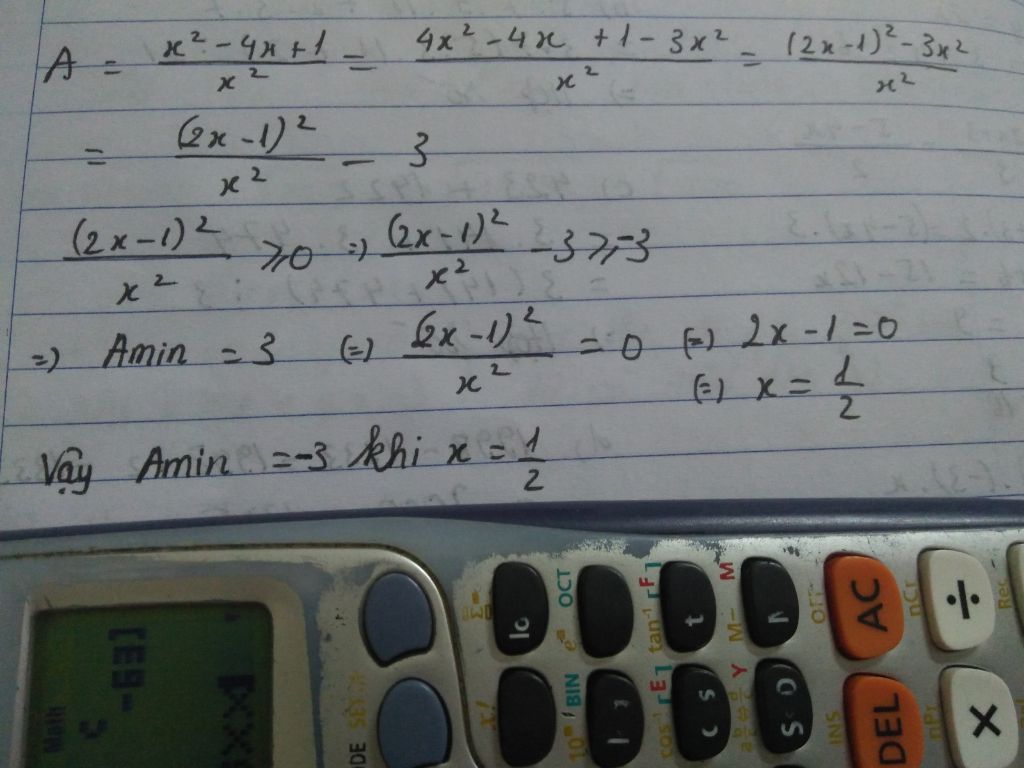 A = \frac{x² - 4x + 1}{x²} = \frac{4x² - 4x + 1 - 3x²}{x²} = \frac{(2x-1)² - 3x²}{x²}
= \frac{(2x-1)²}{x²} - 3
\frac{(2x-1)²}{x²} ⩾ 0 => \frac{(2x-1)²}{x²} - 3 ⩾ -3
=> Amin = 3 (=) \frac{(2x-1)²}{x²} = 0 (=) 2x - 1 = 0
(=) x = \frac{1}{2}
Vậy Amin = -3 khi x = \frac{1}{2}
Math
OCT
BIN
tan⁻¹ [F]
cos⁻¹ [E]
M- M
Y
OFF
AC
nCr
÷
Rec
INS
DEL
nPr
×
x!